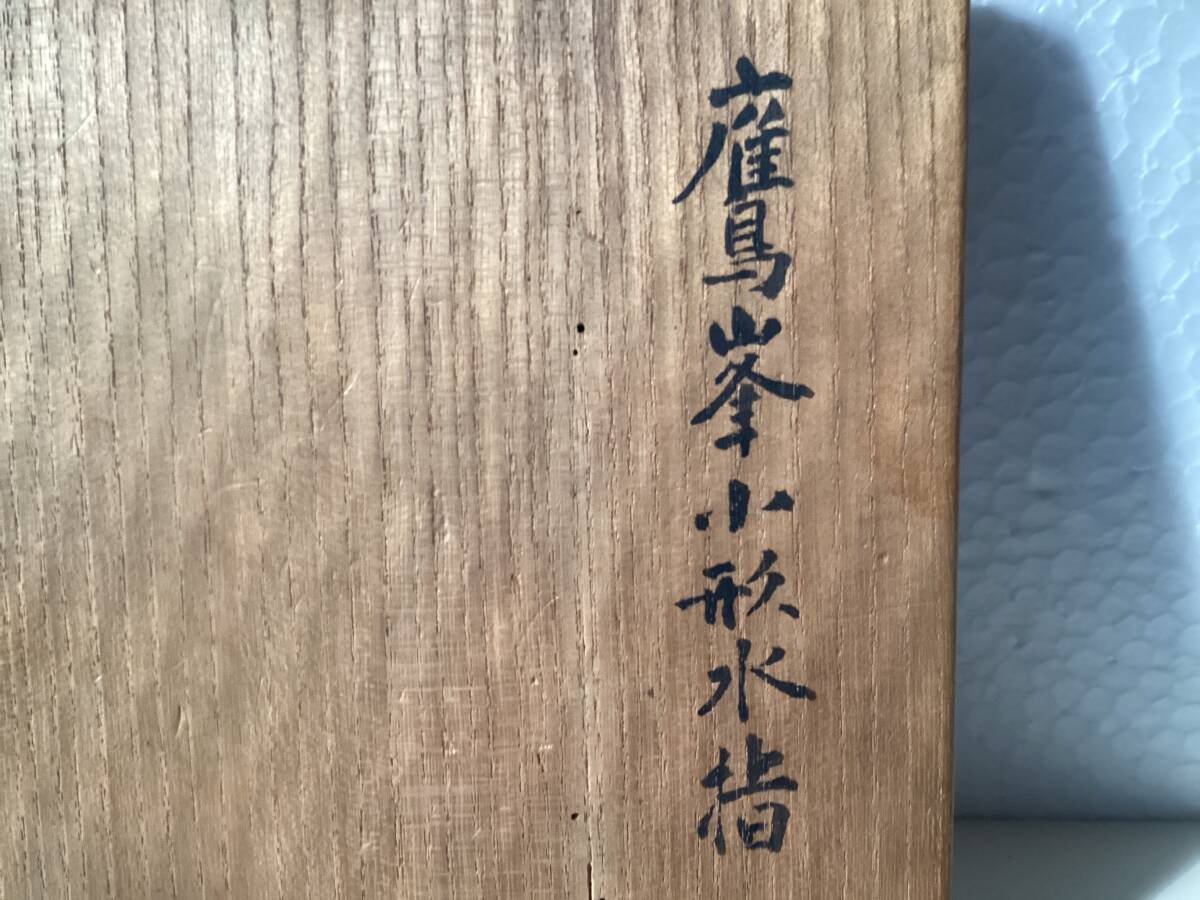 鷹峯小形水指